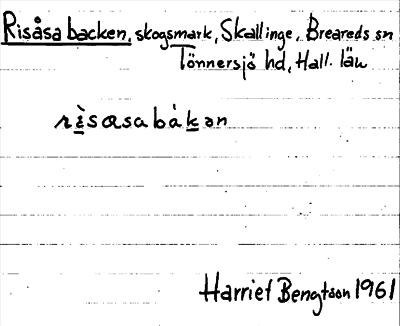 Risåsa backen, skogsmark, Skallinge, Breareds sn
Tönnersjö hd, Hall. län
rìsasabákən
Harriet Bengtson 1961